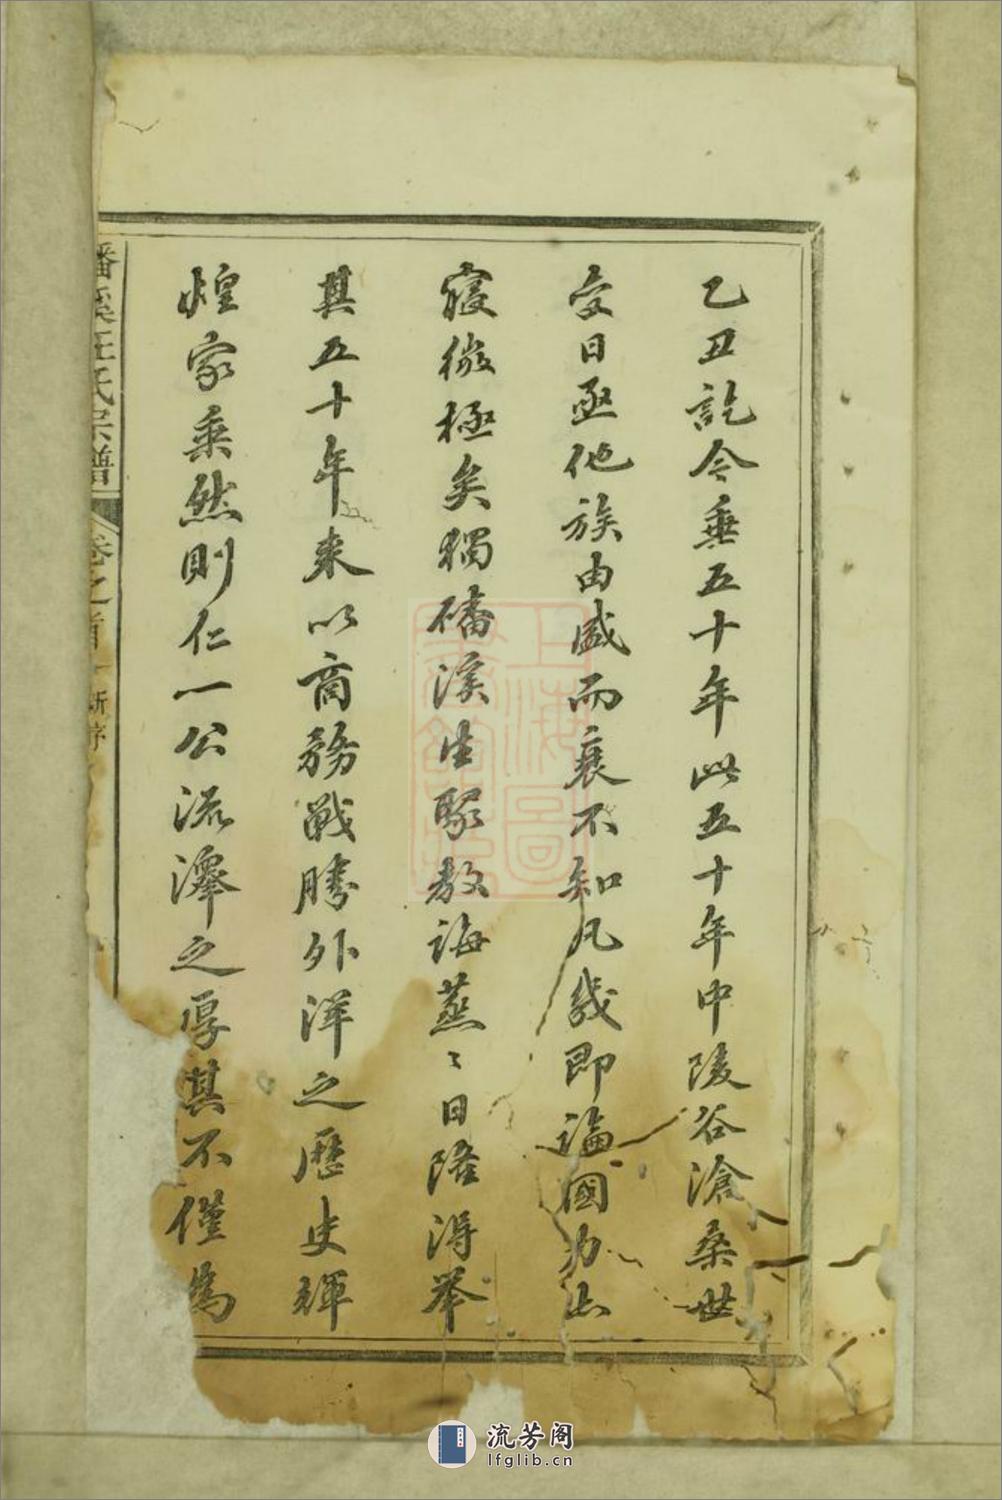 乙丑訖今垂五十年此五十年中陵谷滄桑世
変日亟他族由盛而衰不知凡幾即論國力亦
寖微極矣獨磻溪生聚教誨蒸〻日隆得舉
其五十年来以商務戰勝外洋之歷史輝
煌家乘然則仁一公流澤之厚其不僅為
磻溪汪氏宗譜
卷之首
新序
上海圖
流芳阁
lfglib.cn